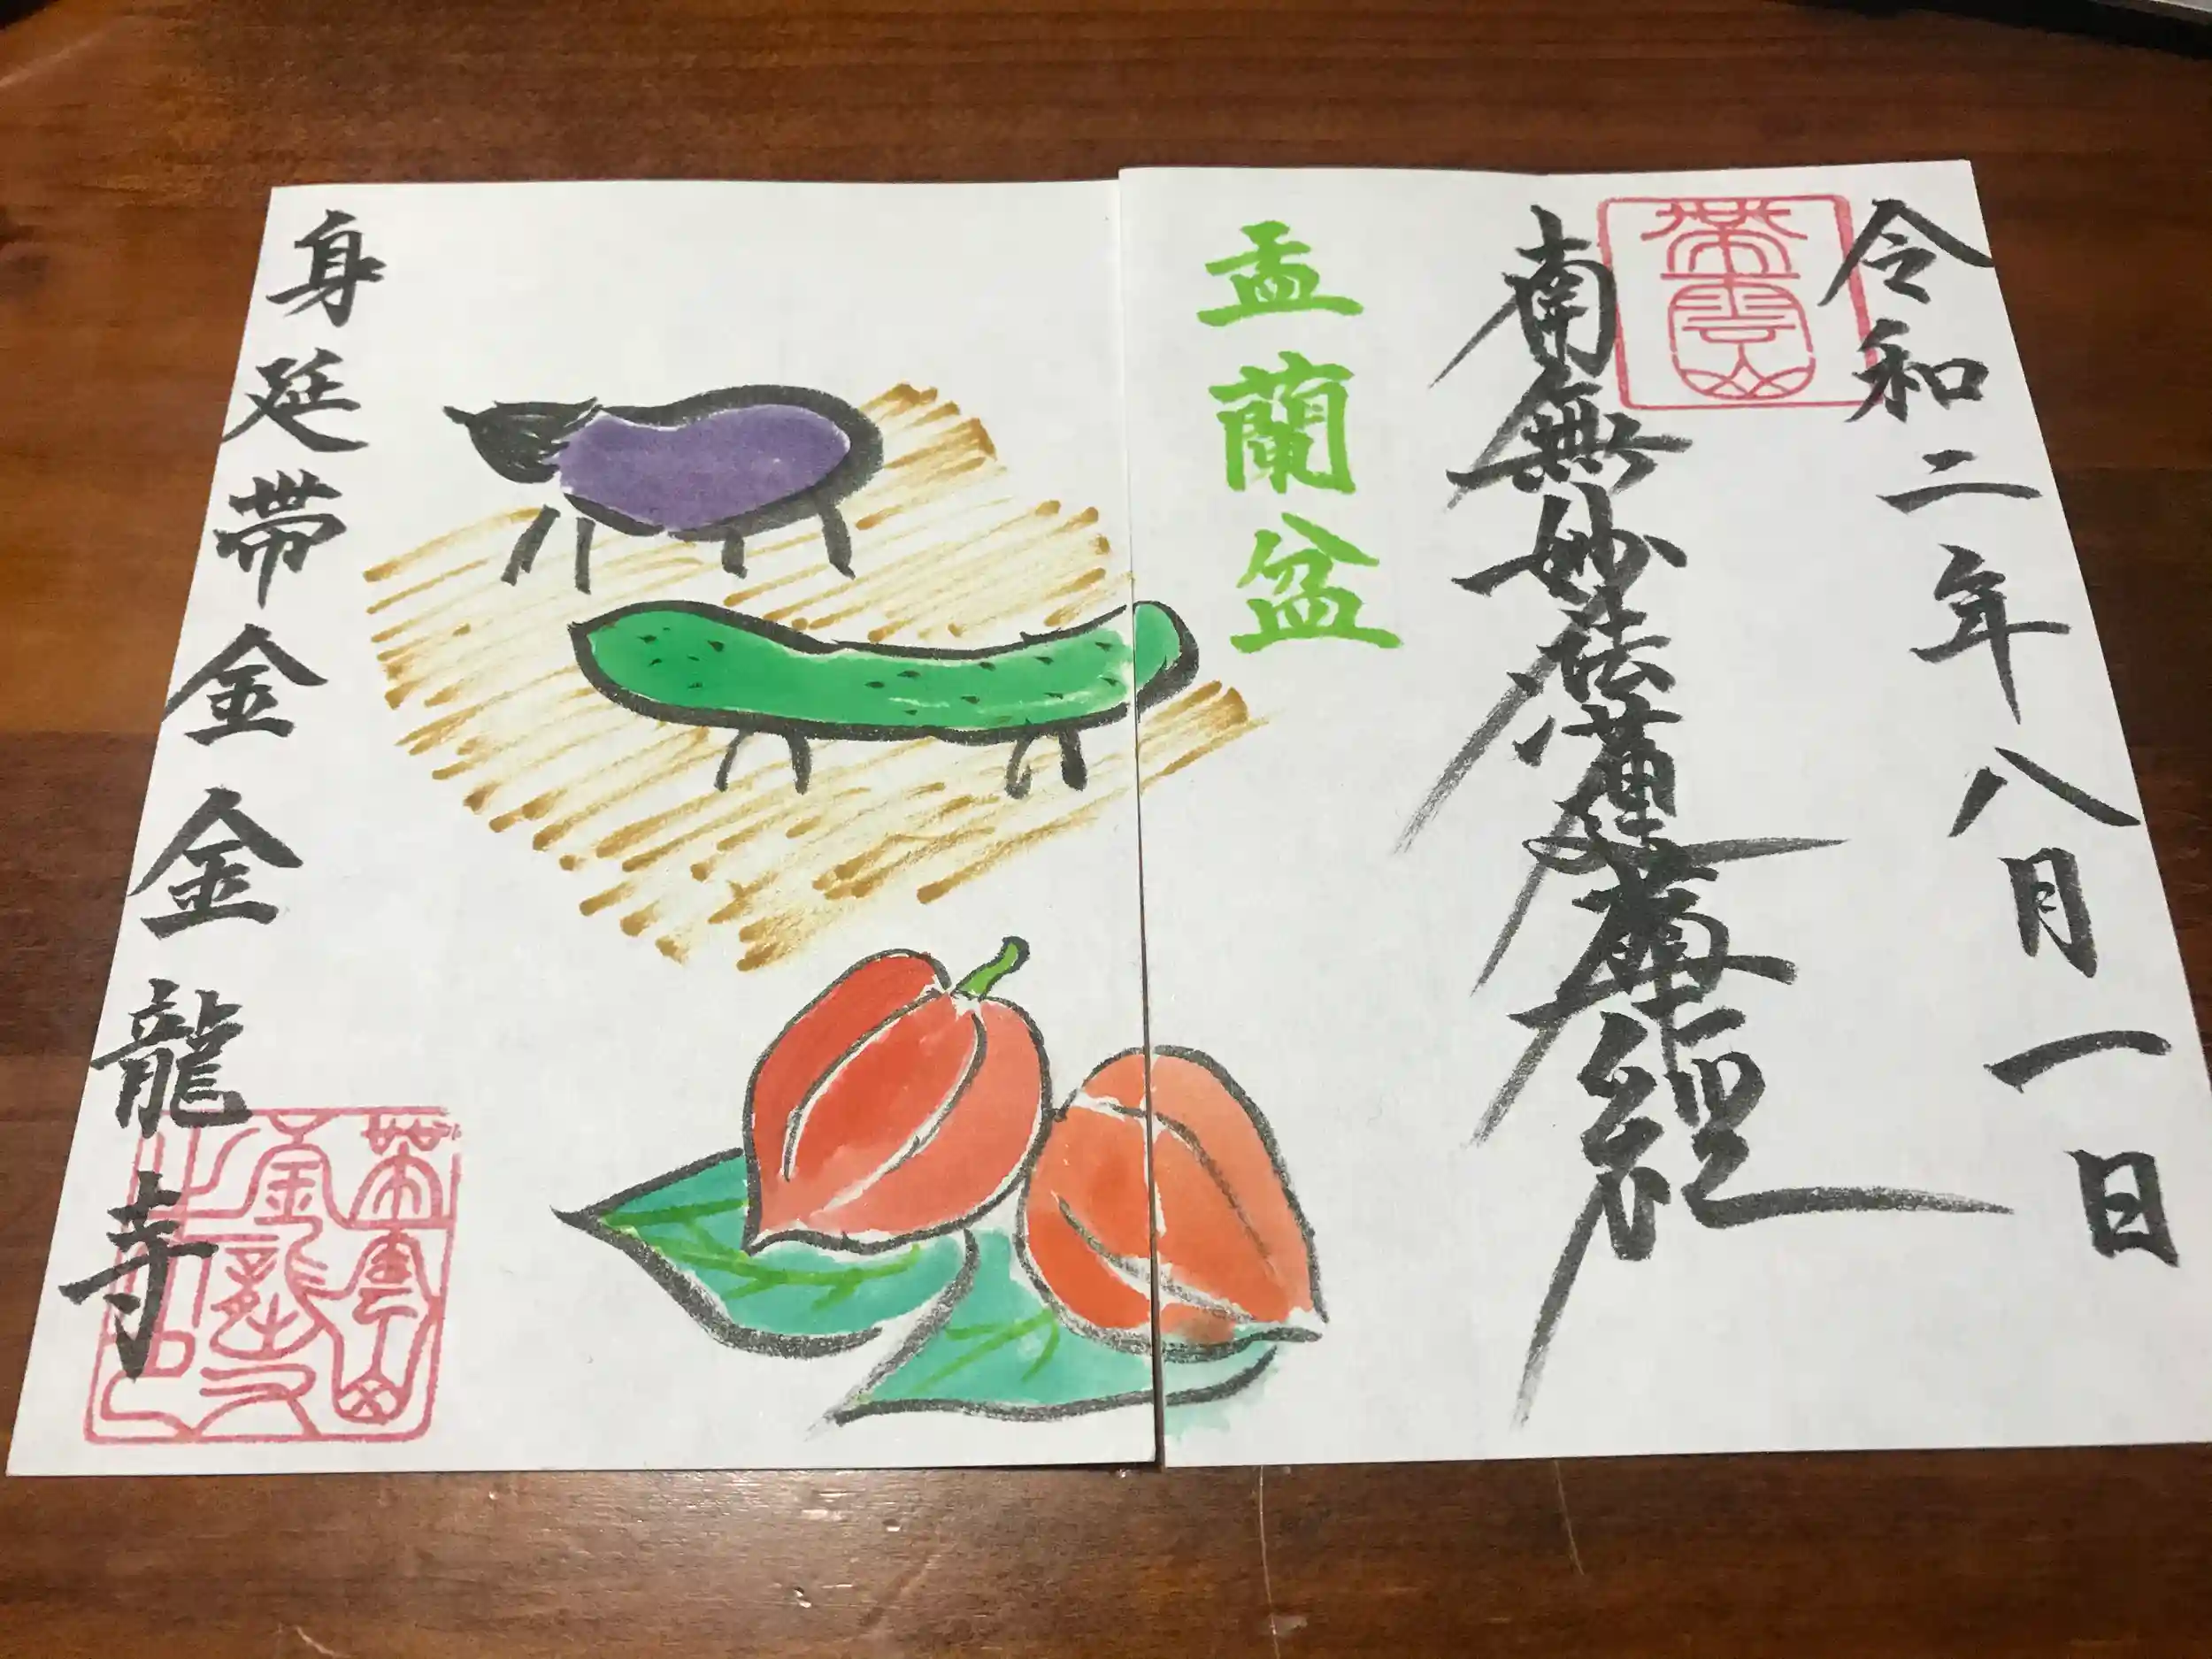 令和二年八月一日
帯雲山
南無妙法蓮華經
盂蘭盆
身延帯金金龍寺